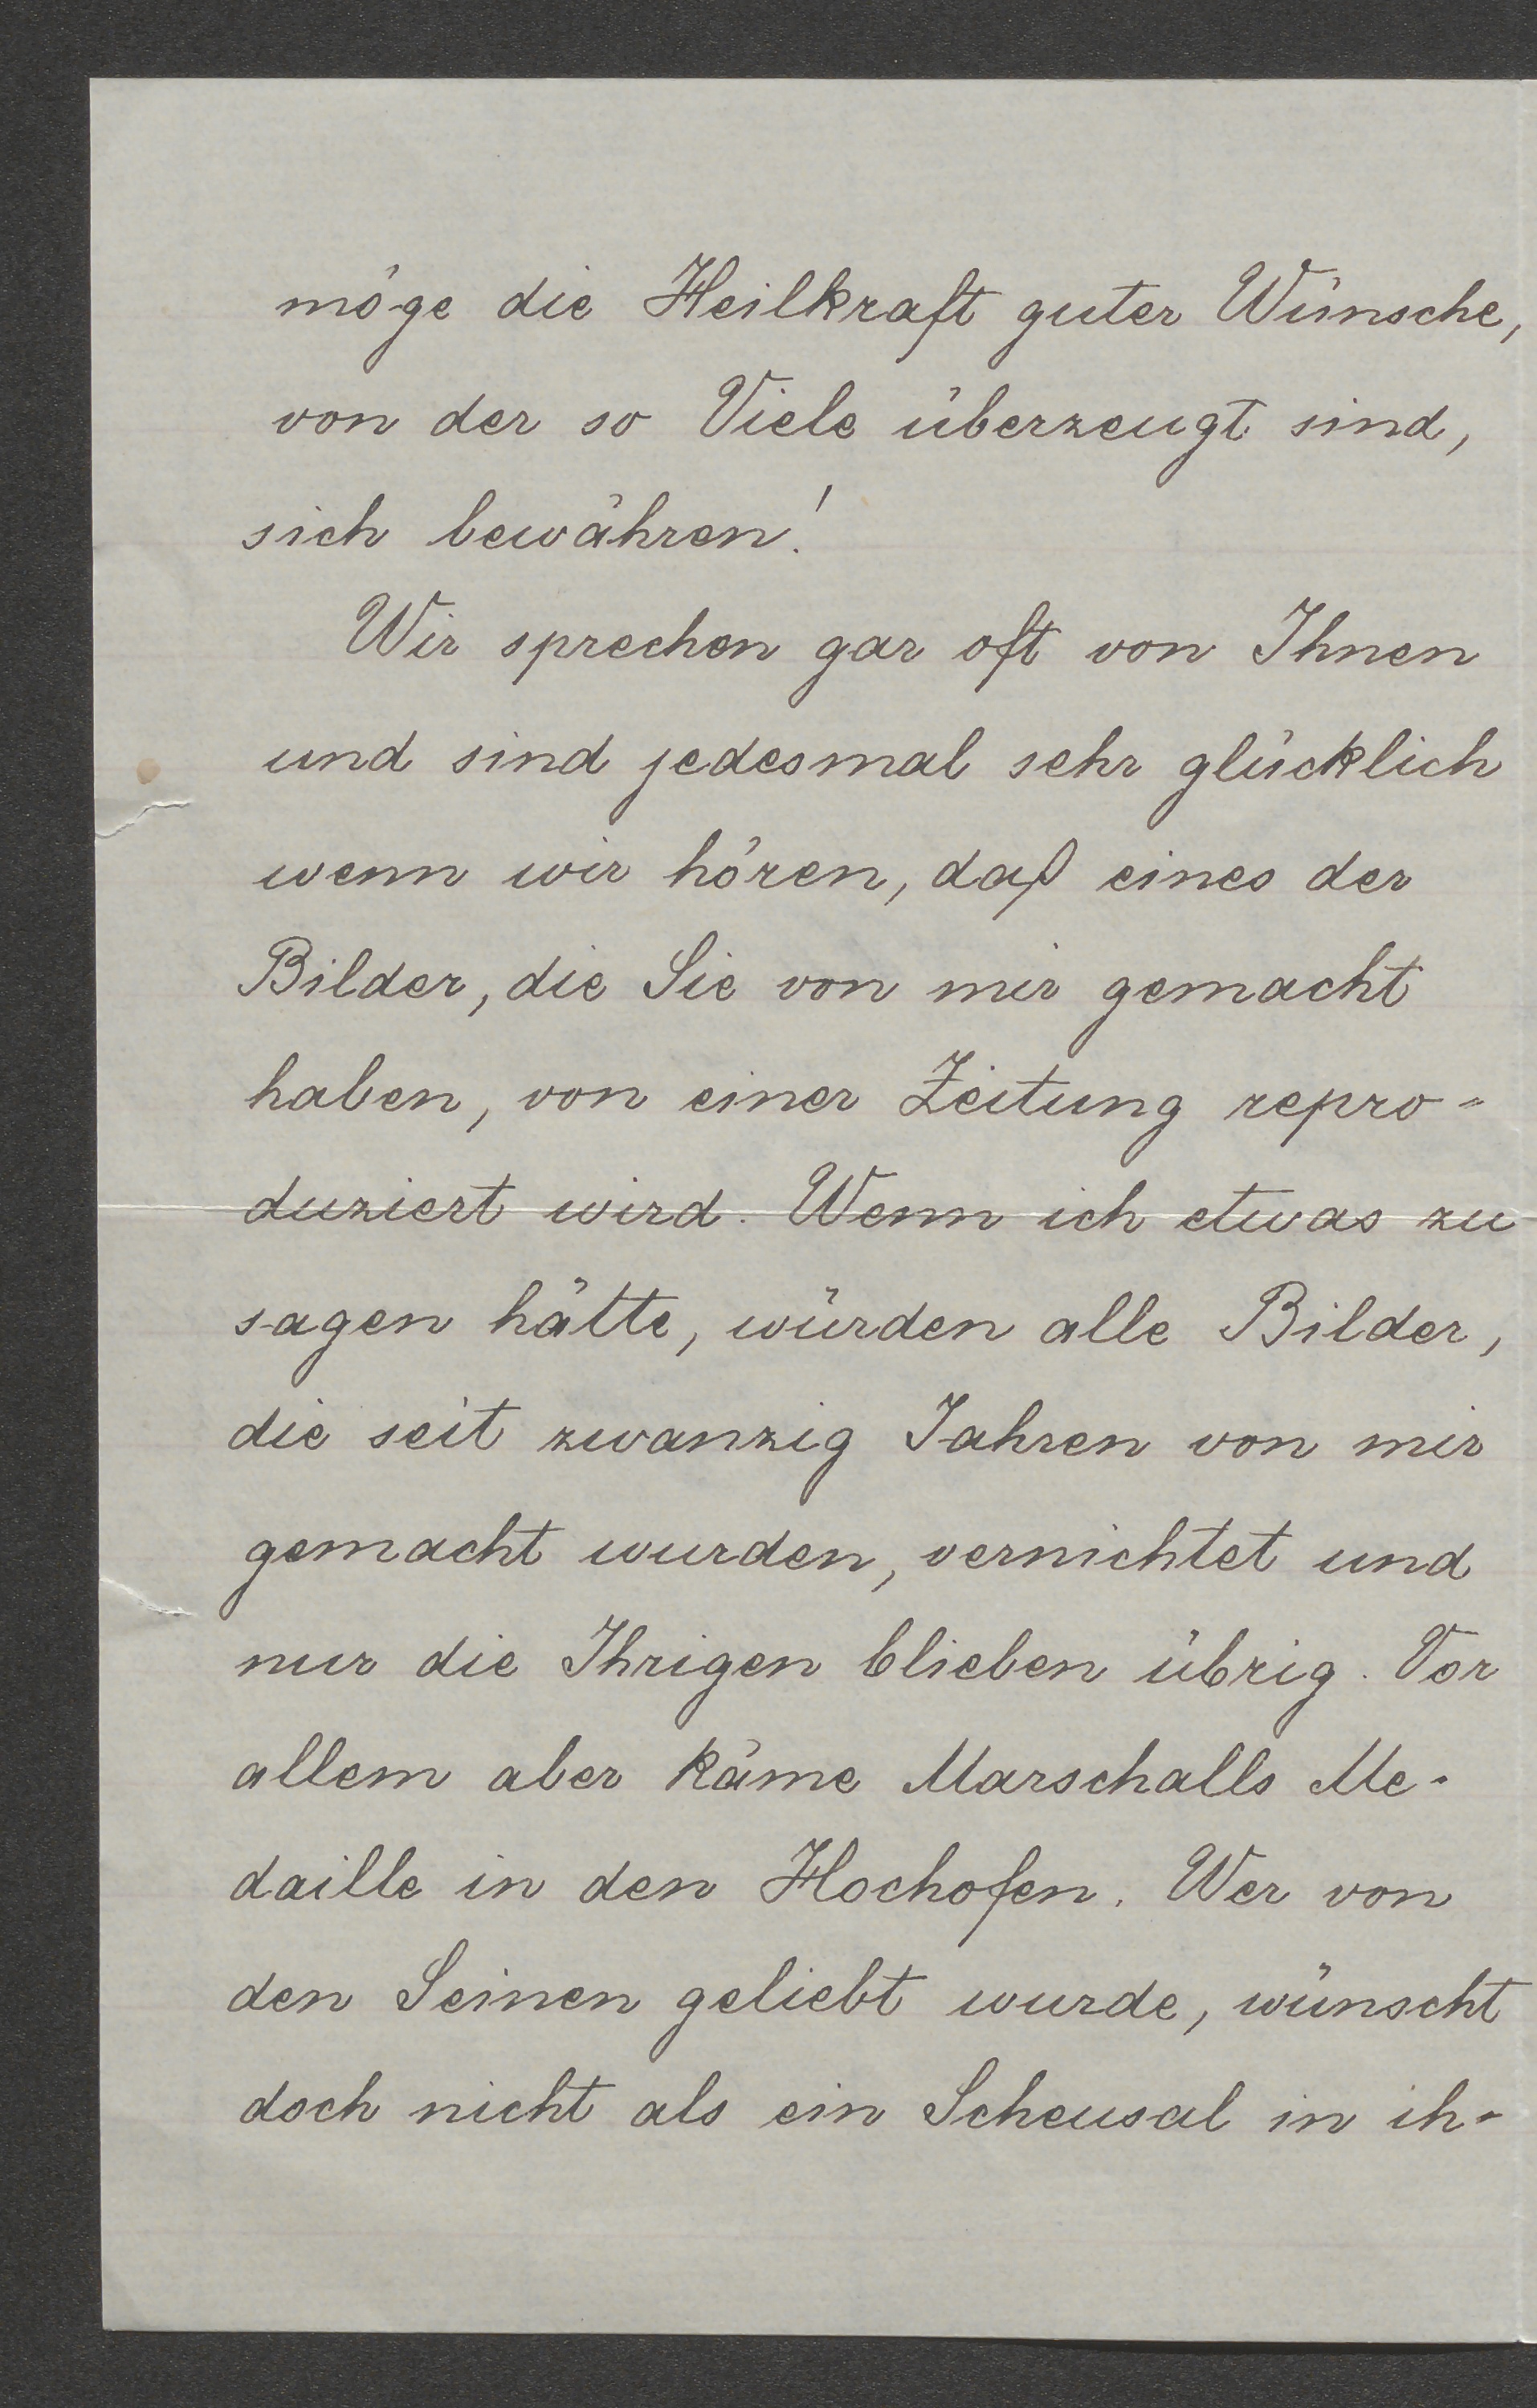 möge die Heilkraft guter Wünsche,
von der so Viele überzeugt sind,
sich bewähren!
Wir sprechen gar oft von Ihnen
und sind jedesmal sehr glücklich
wenn wir hören, daß eines der
Bilder, die Sie von mir gemacht
haben, von einer Zeitung repro-
duziert wird. Wenn ich etwas zu
sagen hätte, würden alle Bilder,
die seit zwanzig Jahren von mir
gemacht wurden, vernichtet und
nur die Ihrigen blieben übrig. Vor
allem aber käme Marschalls Me-
daille in den Hochofen. Wer von
den Seinen geliebt wurde, wünscht
doch nicht als ein Scheusal in ih-